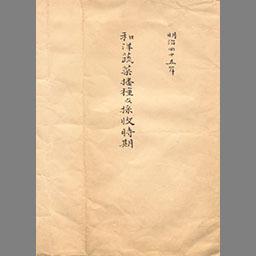 明治四十五年
和洋蔬菜播種及採收時期